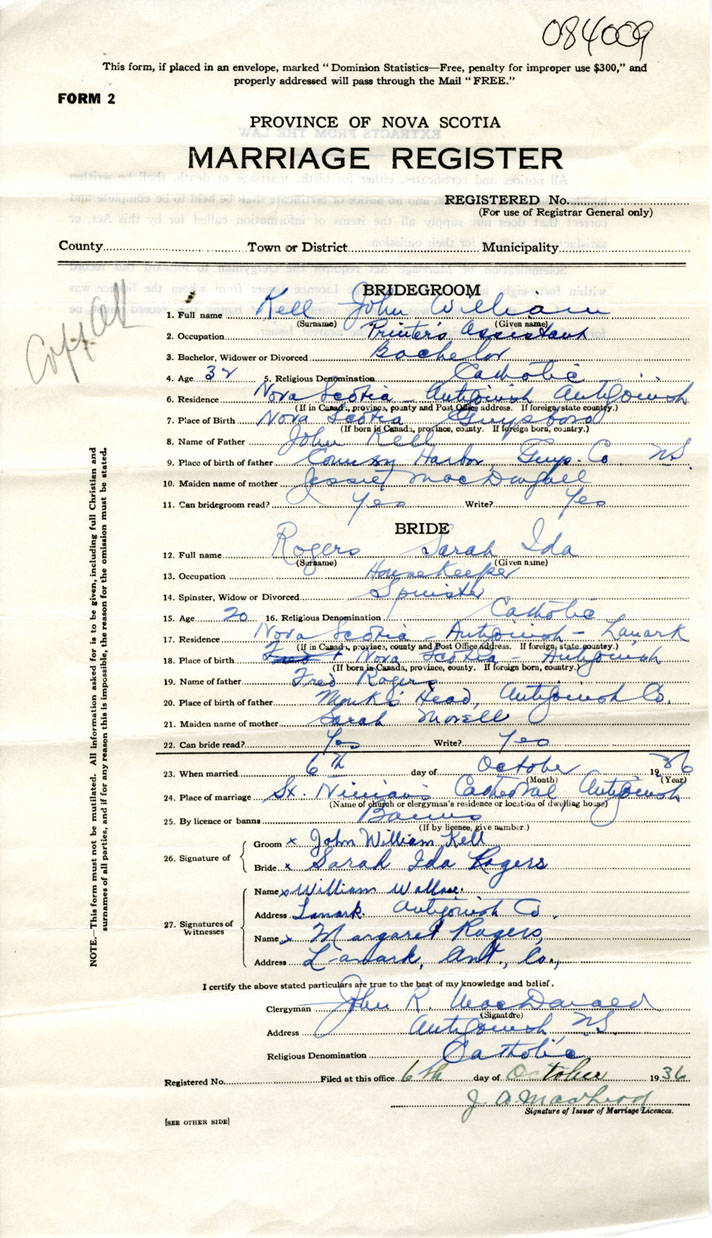 084009
This form, if placed in an envelope, marked "Dominion Statistics—Free, penalty for improper use $300," and
properly addressed will pass through the Mail "FREE."
FORM 2
PROVINCE OF NOVA SCOTIA
MARRIAGE REGISTER
REGISTERED No.
(For use of Registrar General only)
County Town or District Municipality
BRIDEGROOM
1. Full name Kell John William
(Surname) (Given name)
2. Occupation Printer's Assistant
3. Bachelor, Widower or Divorced Bachelor
4. Age 32 5. Religious Denomination Catholic
6. Residence Nova Scotia - Antigonish Antigonish
(If in Canada, province, county and Post Office address. If foreign state country.)
7. Place of Birth Nova Scotia Guysboro
(If born in Canada, province, county. If foreign born, country.)
8. Name of Father John Kell
9. Place of birth of father Country Harbor, Guys. Co. NS
10. Maiden name of mother Jessie MacDougall
11. Can bridegroom read? Yes Write? Yes
BRIDE
12. Full name Rogers Sarah Ida
(Surname) (Given name)
13. Occupation Housekeeper
14. Spinster, Widow or Divorced Spinster
15. Age 20 16. Religious Denomination Catholic
17. Residence Nova Scotia - Antigonish - Lanark
(If in Canada, province, county and Post Office address. If foreign, state country.)
18. Place of birth Nova Scotia Antigonish
(If born in Canada, province, county. If foreign born, country.)
19. Name of father Fred Rogers
20. Place of birth of father Monk's Head, Antigonish Co.
21. Maiden name of mother Sarah Morell
22. Can bride read? Yes Write? Yes
23. When married 6th day of October 1936
(Month) (Year)
24. Place of marriage St. Ninian's Cathedral Antigonish
(Name of church or clergyman's residence or location of dwelling house)
25. By licence or banns Banns
(If by licence, give number.)
26. Signature of Groom x John William Kell
Bride x Sarah Ida Rogers
27. Signatures of Witnesses Name x William Wallace
Address Lanark Antigonish Co.
Name x Margaret Rogers
Address Lanark, Ant, Co.,
I certify the above stated particulars are true to the best of my knowledge and belief.
Clergyman John R. MacDonald
(Signature)
Address Antigonish NS.
Religious Denomination Catholic
Registered No. Filed at this office 6th day of October 1936
J. A. MacLeod
Signature of Issuer of Marriage Licences.
[SEE OTHER SIDE]
NOTE.—This form must not be mutilated. All information asked for is to be given, including full Christian and
surnames of all parties, and if for any reason this is impossible, the reason for the omission must be stated.